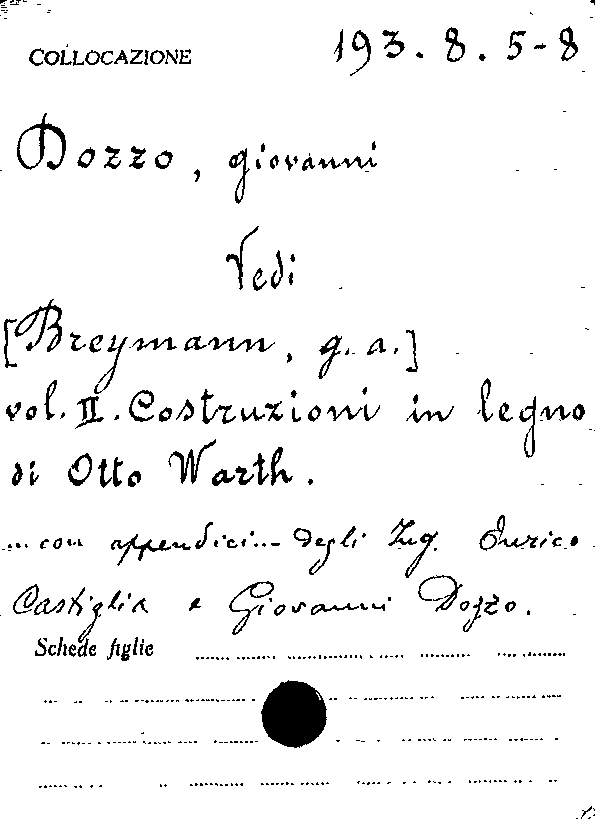 COLLOCAZIONE 193. 8. 5-8
Dozzo, giovanni
Vedi
[Breymann, g. a.]
vol. II. Costruzioni in legno
di Otto Warth.
... con appendici... degli Ing. Enrico
Castiglia e Giovanni Dozzo.
Schede figlie